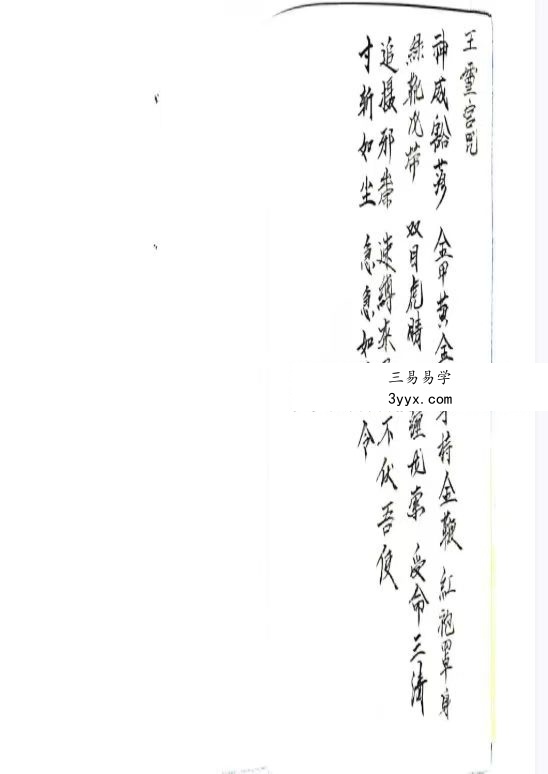 王灵官咒
神威豁落 金甲黄金 手持金鞭 红袍罩身
绿靴风带 双目虎睛 缠龙索 受命三清
追摄邪祟 速缚来 不伏吾使
寸斩如尘 急急如 令
三易易学
3yyx.com